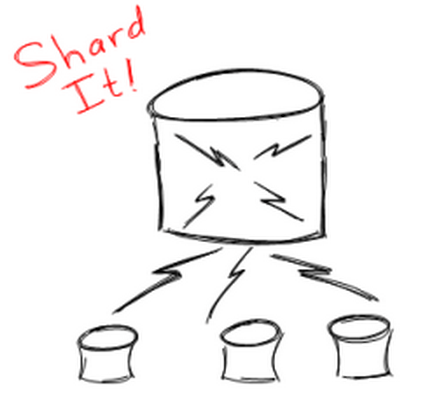 Shard
It!